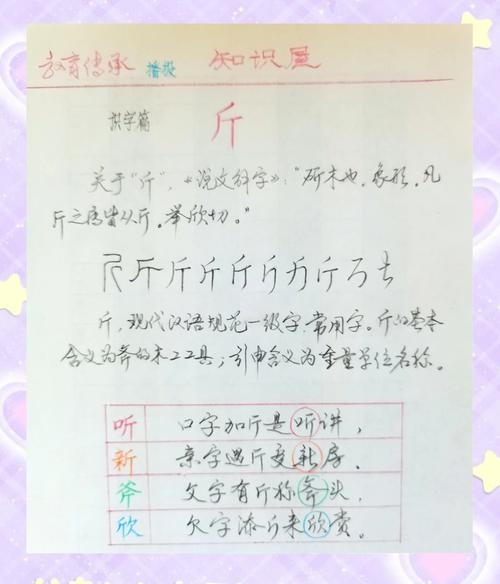 教育传承 播报 知识屋
识字篇 斤
关于“斤”,《说文解字》:“斫木也,象形,凡
斤之属皆从斤。举欣切。”
斤,现代汉语规范一级字、常用字。斤的基本
含义为斧的木工工具;引申含义为重量单位名称。
听 口字加斤是听讲,
新 亲字遇斤变新房、
斧 父字有斤称斧头,
欣 欠字添斤来欣赏。